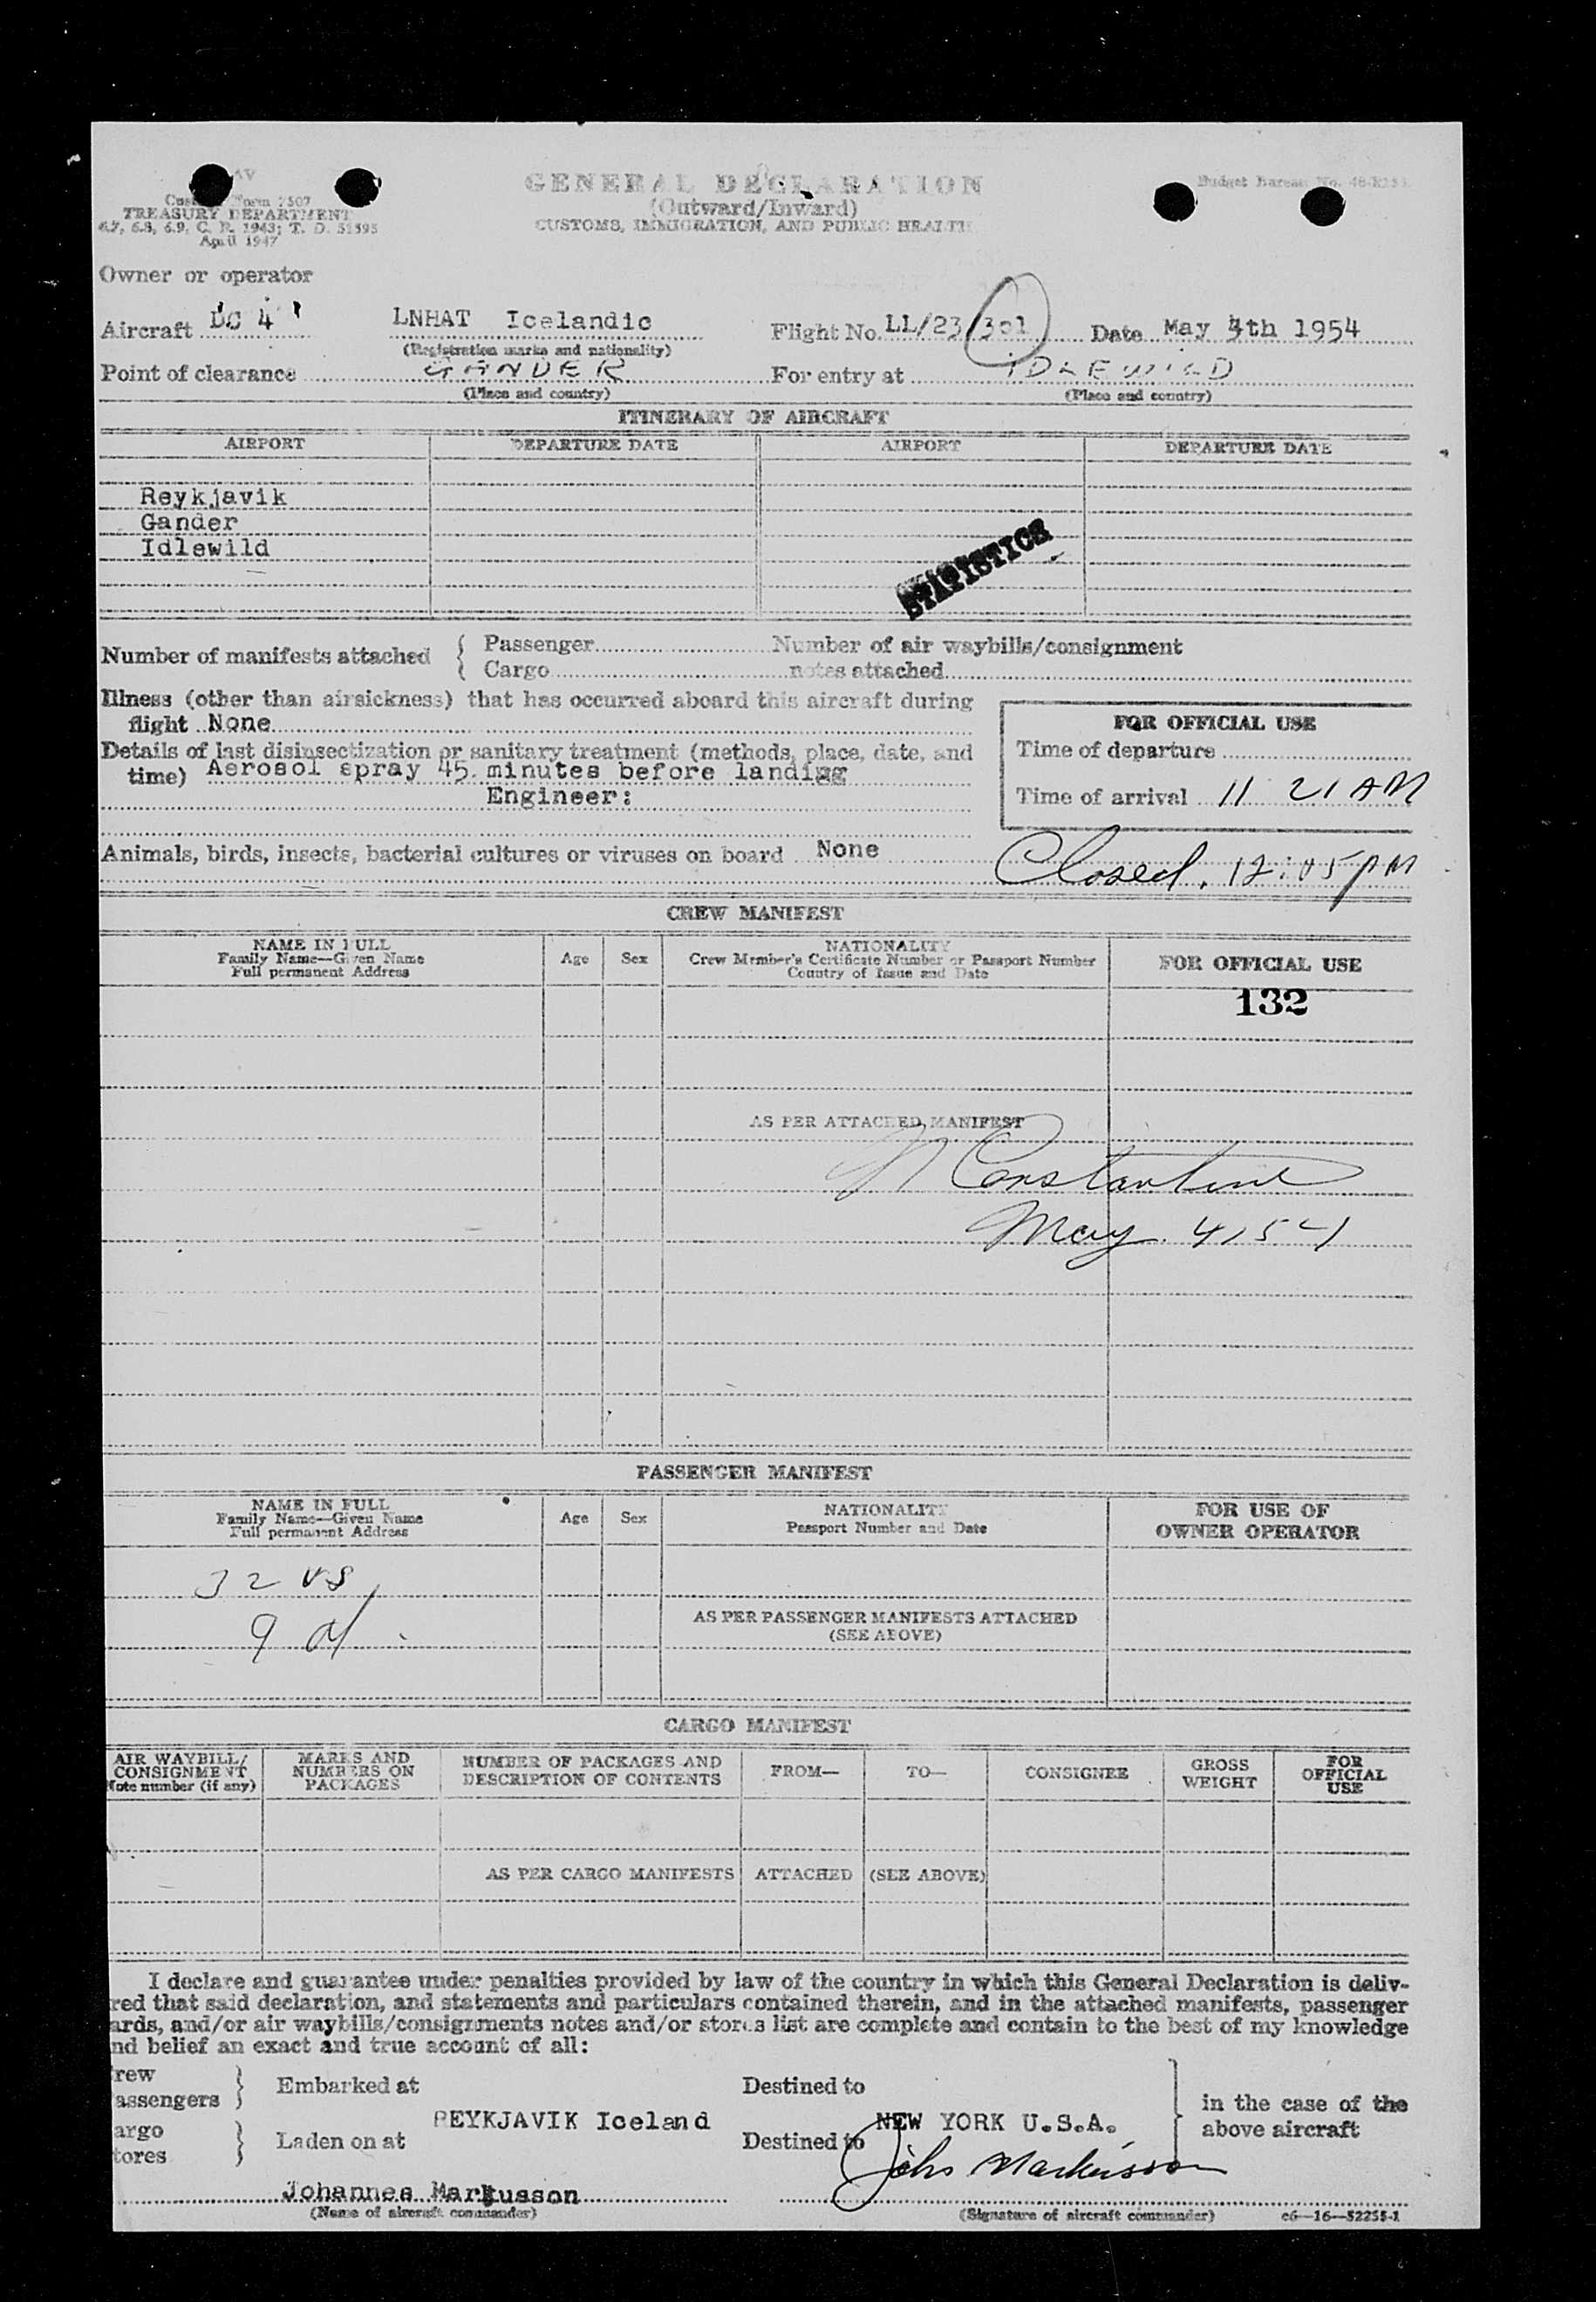 GENERAL DECLARATION
(Outward/Inward)
CUSTOMS, IMMIGRATION, AND PUBLIC HEALTH
Form 7507
TREASURY DEPARTMENT
6.7, 6.8, 6.9, C. R. 1943; T. D. 51595
April 1947
Budget Bureau No.
Owner or operator
Aircraft DC 4 LNHAT Icelandic Flight No. LL/23/301 Date May 4th 1954
(Registration marks and nationality)
Point of clearance GANDER For entry at IDLEWILD
(Place and country) (Place and country)
ITINERARY OF AIRCRAFT
AIRPORT DEPARTURE DATE AIRPORT DEPARTURE DATE
Reykjavik
Gander
Idlewild
STATISTICS
Number of manifests attached { Passenger Number of air waybills/consignment
{ Cargo notes attached
Illness (other than airsickness) that has occurred aboard this aircraft during
flight None
FOR OFFICIAL USE
Details of last disinsectization or sanitary treatment (methods, place, date, and
time) Aerosol spray 45 minutes before landigg
Engineer:
Time of departure
Time of arrival 11 21 AM
Animals, birds, insects, bacterial cultures or viruses on board None
Closed. 12:05 PM
CREW MANIFEST
NAME IN FULL
Family Name—Given Name
Full permanent Address
Age Sex
NATIONALITY
Crew Member's Certificate Number or Passport Number
Country of Issue and Date
FOR OFFICIAL USE
132
AS PER ATTACHED MANIFEST
N Constantine
May 4, 54
PASSENGER MANIFEST
NAME IN FULL
Family Name—Given Name
Full permanent Address
Age Sex
NATIONALITY
Passport Number and Date
FOR USE OF
OWNER OPERATOR
32 US
9
AS PER PASSENGER MANIFESTS ATTACHED
(SEE ABOVE)
CARGO MANIFEST
AIR WAYBILL/
CONSIGNMENT
Note number (if any)
MARKS AND
NUMBERS ON
PACKAGES
NUMBER OF PACKAGES AND
DESCRIPTION OF CONTENTS
FROM—
TO—
CONSIGNEE
GROSS
WEIGHT
FOR
OFFICIAL
USE
AS PER CARGO MANIFESTS ATTACHED (SEE ABOVE)
I declare and guarantee under penalties provided by law of the country in which this General Declaration is deliv-
red that said declaration, and statements and particulars contained therein, and in the attached manifests, passenger
ards, and/or air waybills/consignments notes and/or stores list are complete and contain to the best of my knowledge
nd belief an exact and true account of all:
rew
assengers } Embarked at Destined to
REYKJAVIK Iceland NEW YORK U.S.A.
argo
tores } Laden on at Destined to
in the case of the
above aircraft
Johannes Markusson Johs Markusson
(Name of aircraft commander) (Signature of aircraft commander) c6—16—52255-1